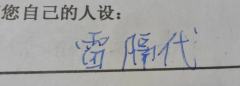 您自己的人设:
雷隔代